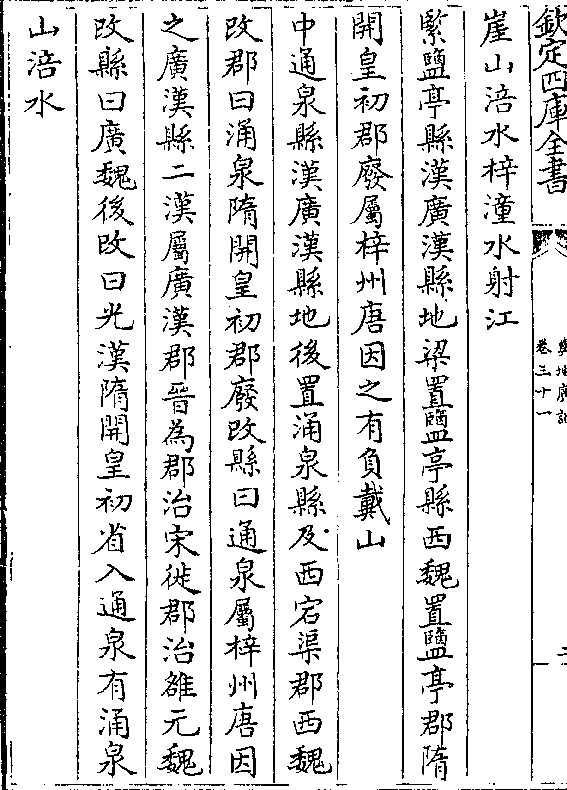 欽定四庫全書
輿地廣記
卷三十一
二
崖山涪水梓潼水射江
緊鹽亭縣漢廣漢縣地梁置鹽亭縣西魏置鹽亭郡隋
開皇初郡廢屬梓州唐因之有負戴山
中通泉縣漢廣漢縣地後置涌泉縣及西宕渠郡西魏
改郡曰涌泉隋開皇初郡廢改縣曰通泉屬梓州唐因
之廣漢縣二漢屬廣漢郡晉為郡治宋徙郡治雒元魏
改縣曰廣魏後改曰光漢隋開皇初省入通泉有涌泉
山涪水